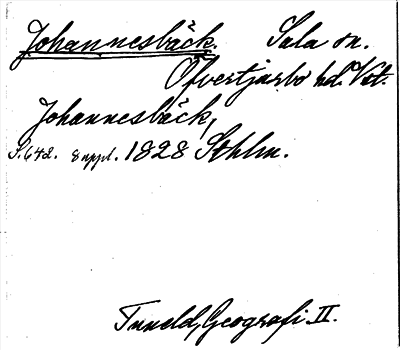 Johannesbäck. Sala sn.
Öfvertjurbo hd. Vst.
Johannesbäck,
S. 642. suppl. 1828 Sthlm.
Tuneld, Geografi II.